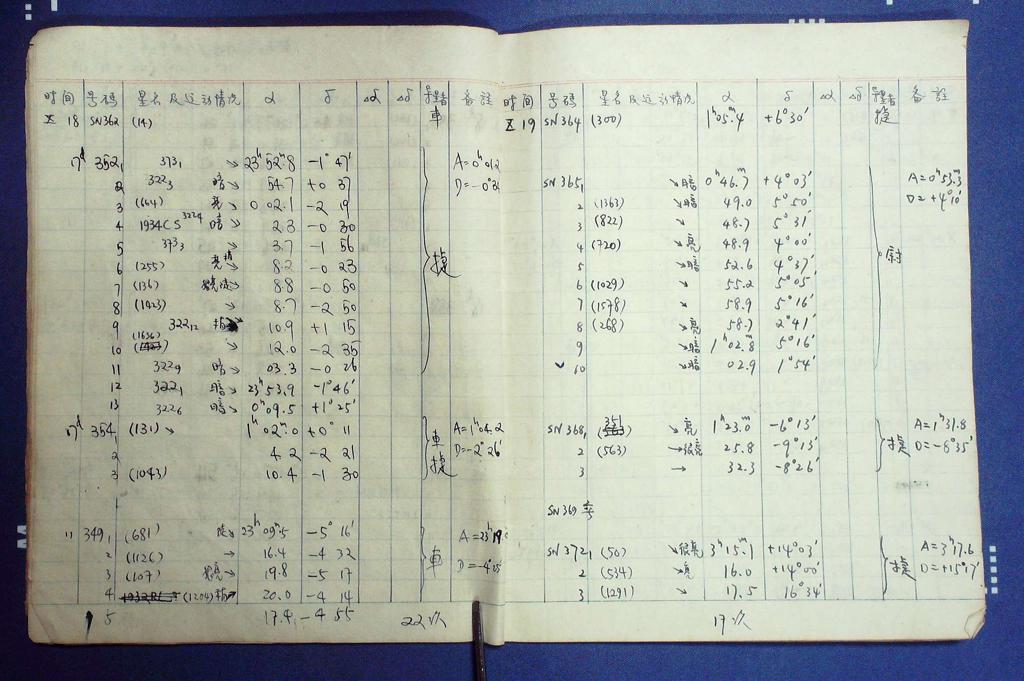 时间 号码 星名及运动情况 α δ Δα Δδ 备註
X 18 SN362 (14) 車
17d 352 1 3731 → 23h 52m.8 -1° 47' A=0h01.2
2 3223 暗→ 54.7 +0 37
3 (664) 亮→ 0 02.1 -2 19
4 1934CS 3224 暗→ 2.3 -0 30
5 3733 → 3.7 -1 56
6 (255) 8.2 -0 23 捷
7 (136) → 8.8 -0 50
8 (1423) → 8.7 -2 50
9 32212 10.9 +1 15
10 (1636) → 12.0 -2 35
11 3229 暗→ 03.3 -0 26
12 3221 暗→ 23h 53.9 -1° 46'
13 3226 暗→ 0h 09.5 +1° 25'
17d 354 1 (131) → 1h 02m.0 +0° 11 車 A=1h04.2
2 4.2 -2 21 捷 D=-2° 26'
3 (1043) 10.4 -1 30
" 349 1 (681) → 23h 09m.5 -5° 16'
2 (1126) → 16.4 -4 32 車
3 (107) → 19.8 -5 17
4 (1204) → 20.0 -4 14
5 17.4 -4 55
22次
时间 号码 星名及运动情况 α δ Δα Δδ 备註
X 19 SN364 (300) 1h 05m.4 +6° 30' 捷
SN365 1 →暗 0h 46m.7 +4° 03' A=0h53m.3
2 (1363) →暗 49.0 5° 50' D=+4° 10'
3 (822) → 48.7 5° 31'
4 (720) →亮 48.9 4° 00' 尉
5 →暗 52.6 4° 37'
6 (1029) → 55.2 5° 05'
7 (1578) → 58.9 5° 16'
8 (268) →亮 58.7 2° 41'
9 →暗 1h 02m.8 5° 16'
10 →暗 02.9 1° 54'
SN368 1 351 →亮 1h 23m.0 -6° 13' A=1h31.8
2 (563) →很亮 25.8 -9° 13' 捷 D=-6° 35'
3 → 32.3 -8° 26'
SN369 专
SN372 1 (50) →很亮 3h 15m.1 +14° 03' A=3h17.6
2 (534) →亮 16.0 +14° 00' 捷 D=+15° 17'
3 (1291) → 17.5 16° 34'
17次